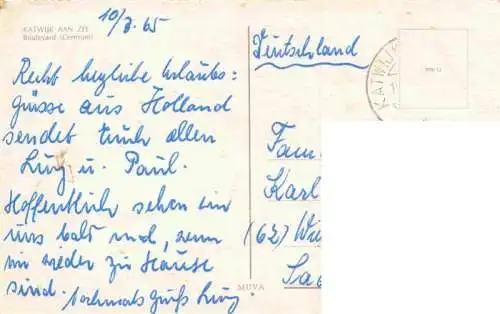 KATWIJK AAN ZEE
Boulevard (Centrum)
10/8. 65
Recht herzliche Urlaubs=
grüsse aus Holland
sendet Euch allen
Lucy u. Paul.
Hoffentlich sehen wir
uns bald mal, wenn
wir wieder zu Hause
sind. Nochmals Gruß Lucy.
Deutschland
KATWIJK
Fam
Karl
(62) Wi
MUVA